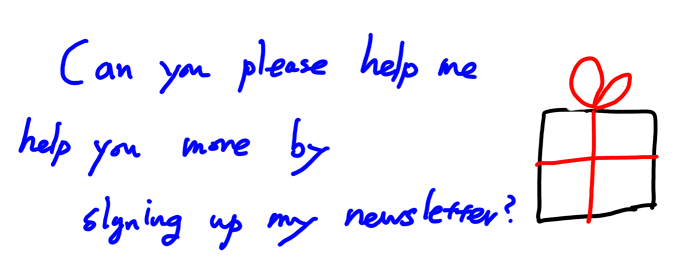 Can you please help me
help you more by
signing up my newsletter?